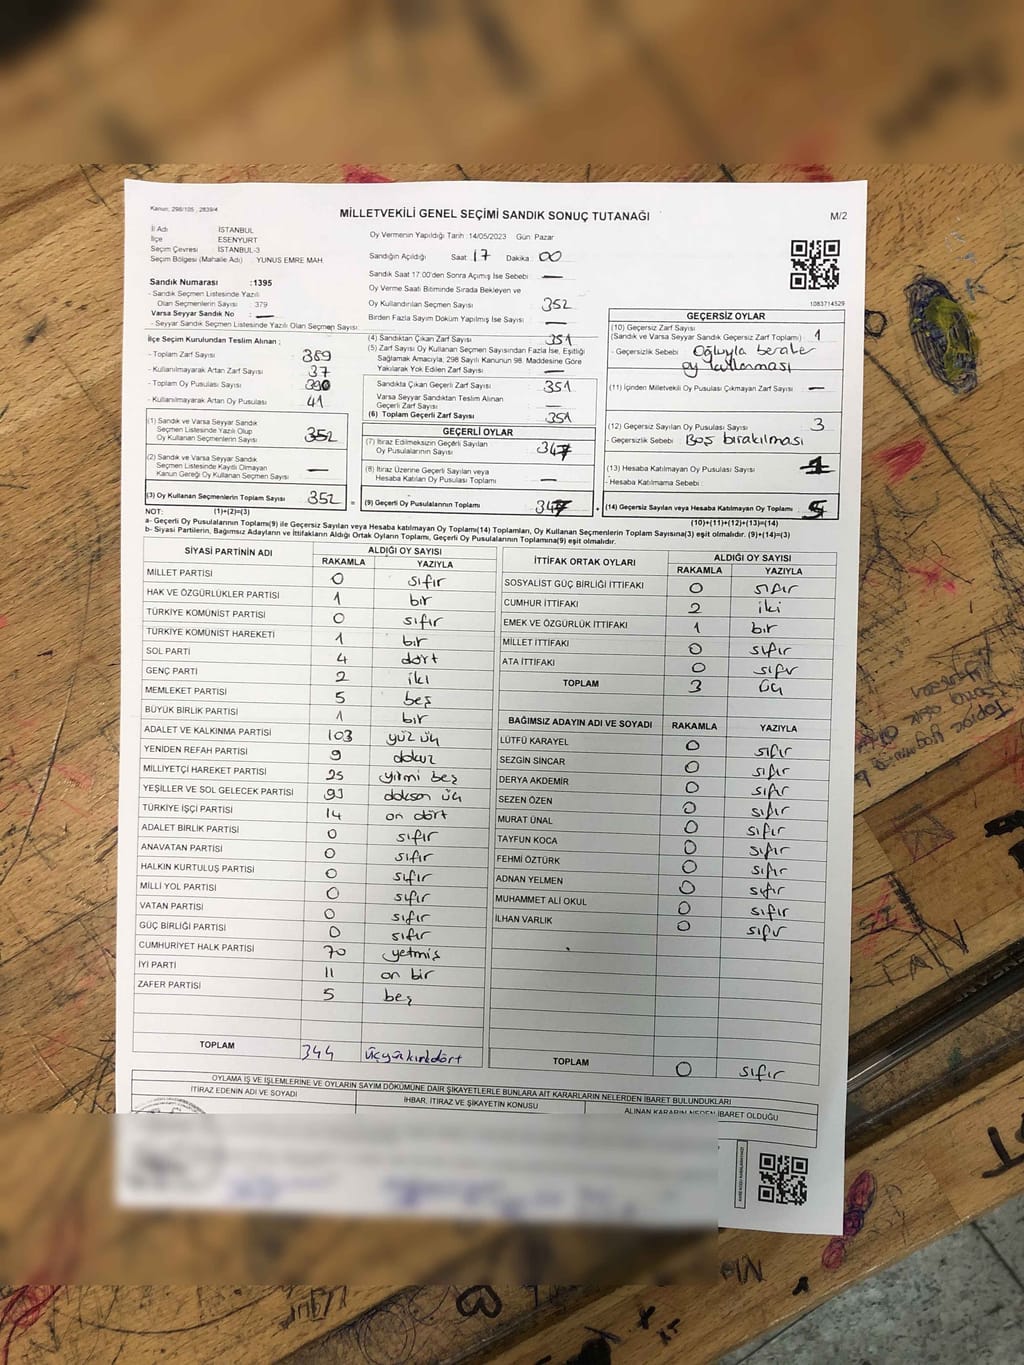 Kanun, 298/105 , 2839/4
MİLLETVEKİLİ GENEL SEÇİMİ SANDIK SONUÇ TUTANAĞI
M/2
İl Adı İSTANBUL
İlçe ESENYURT
Seçim Çevresi İSTANBUL-3
Seçim Bölgesi (Mahalle Adı) YUNUS EMRE MAH.
Sandık Numarası :1395
- Sandık Seçmen Listesinde Yazılı
Olan Seçmenlerin Sayısı : 379
Varsa Seyyar Sandık No : —
- Seyyar Sandık Seçmen Listesinde Yazılı Olan Seçmen Sayısı
Oy Vermenin Yapıldığı Tarih :14/05/2023 Gün Pazar
Sandığın Açıldığı Saat 17 Dakika 00
Sandık Saat 17:00'den Sonra Açımış İse Sebebi —
Oy Verme Saati Bitiminde Sırada Bekleyen ve
Oy Kullandırılan Seçmen Sayısı 352
Birden Fazla Sayım Döküm Yapılmış İse Sayısı —
1083714529
İlçe Seçim Kurulundan Teslim Alınan ;
- Toplam Zarf Sayısı 389
- Kullanılmayarak Artan Zarf Sayısı 37
- Toplam Oy Pusulası Sayısı 390
- Kullanılmayarak Artan Oy Pusulası 41
(1) Sandık ve Varsa Seyyar Sandık
Seçmen Listesinde Yazılı Olup
Oy Kullanan Seçmenlerin Sayısı 352
(2) Sandık ve Varsa Seyyar Sandık
Seçmen Listesinde Kayıtlı Olmayan
Kanun Gereği Oy Kullanan Seçmen Sayısı —
(3) Oy Kullanan Seçmenlerin Toplam Sayısı 352 =
(4) Sandıktan Çıkan Zarf Sayısı 351
(5) Zarf Sayısı Oy Kullanan Seçmen Sayısından Fazla İse, Eşitliği
Sağlamak Amacıyla, 298 Sayılı Kanunun 98. Maddesine Göre
Yakılarak Yok Edilen Zarf Sayısı —
Sandıkta Çıkan Geçerli Zarf Sayısı 351
Varsa Seyyar Sandıktan Teslim Alınan
Geçerli Zarf Sayısı —
(6) Toplam Geçerli Zarf Sayısı 351
GEÇERLİ OYLAR
(7) İtiraz Edilmeksizin Geçerli Sayılan
Oy Pusulalarının Sayısı 347
(8) İtiraz Üzerine Geçerli Sayılan veya
Hesaba Katılan Oy Pusulası Toplamı —
(9) Geçerli Oy Pusulalarının Toplamı 347 +
GEÇERSİZ OYLAR
(10) Geçersiz Zarf Sayısı
(Sandık ve Varsa Seyyar Sandık Geçersiz Zarf Toplamı) 1
- Geçersizlik Sebebi : Oğluyla beraber
oy kullanması
(11) İçinden Milletvekili Oy Pusulası Çıkmayan Zarf Sayısı —
(12) Geçersiz Sayılan Oy Pusulası Sayısı 3
- Geçersizlik Sebebi : Boş bırakılması
(13) Hesaba Katılmayan Oy Pusulası Sayısı
- Hesaba Katılmama Sebebi :
(14) Geçersiz Sayılan veya Hesaba Katılmayan Oy Toplamı 5
NOT: (1)+(2)=(3) (10)+(11)+(12)+(13)=(14)
a- Geçerli Oy Pusulalarının Toplamı(9) ile Geçersiz Sayılan veya Hesaba katılmayan Oy Toplamı(14) Toplamları, Oy Kullanan Seçmenlerin Toplam Sayısına(3) eşit olmalıdır. (9)+(14)=(3)
b- Siyasi Partilerin, Bağımsız Adayların ve İttifakların Aldığı Ortak Oyların Toplamı, Geçerli Oy Pusulalarının Toplamına(9) eşit olmalıdır.
SİYASİ PARTİNİN ADI ALDIĞI OY SAYISI
RAKAMLA YAZIYLA
MİLLET PARTİSİ 0 sıfır
HAK VE ÖZGÜRLÜKLER PARTİSİ 1 bir
TÜRKİYE KOMÜNİST PARTİSİ 0 sıfır
TÜRKİYE KOMÜNİST HAREKETİ 1 bir
SOL PARTİ 4 dört
GENÇ PARTİ 2 iki
MEMLEKET PARTİSİ 5 beş
BÜYÜK BİRLİK PARTİSİ 1 bir
ADALET VE KALKINMA PARTİSİ 103 yüz üç
YENİDEN REFAH PARTİSİ 9 dokuz
MİLLİYETÇİ HAREKET PARTİSİ 25 yirmi beş
YEŞİLLER VE SOL GELECEK PARTİSİ 93 doksan üç
TÜRKİYE İŞÇİ PARTİSİ 14 on dört
ADALET BİRLİK PARTİSİ 0 sıfır
ANAVATAN PARTİSİ 0 sıfır
HALKIN KURTULUŞ PARTİSİ 0 sıfır
MİLLİ YOL PARTİSİ 0 sıfır
VATAN PARTİSİ 0 sıfır
GÜÇ BİRLİĞİ PARTİSİ 0 sıfır
CUMHURİYET HALK PARTİSİ 70 yetmiş
İYİ PARTİ 11 on bir
ZAFER PARTİSİ 5 beş
TOPLAM 344 üçyüzkırkdört
İTTİFAK ORTAK OYLARI ALDIĞI OY SAYISI
RAKAMLA YAZIYLA
SOSYALİST GÜÇ BİRLİĞİ İTTİFAKI 0 sıfır
CUMHUR İTTİFAKI 2 iki
EMEK VE ÖZGÜRLÜK İTTİFAKI 1 bir
MİLLET İTTİFAKI 0 sıfır
ATA İTTİFAKI 0 sıfır
TOPLAM 3 üç
BAĞIMSIZ ADAYIN ADI VE SOYADI RAKAMLA YAZIYLA
LÜTFÜ KARAYEL 0 sıfır
SEZGİN SİNCAR 0 sıfır
DERYA AKDEMİR 0 sıfır
SEZEN ÖZEN 0 sıfır
MURAT ÜNAL 0 sıfır
TAYFUN KOCA 0 sıfır
FEHMİ ÖZTÜRK 0 sıfır
ADNAN YELMEN 0 sıfır
MUHAMMET ALİ OKUL 0 sıfır
İLHAN VARLIK 0 sıfır
TOPLAM 0 sıfır
OYLAMA İŞ VE İŞLEMLERİNE VE OYLARIN SAYIM DÖKÜMÜNE DAİR ŞİKAYETLERLE BUNLARA AİT KARARLARIN NELERDEN İBARET BULUNDUKLARI
İTİRAZ EDENİN ADI VE SOYADI İHBAR, İTİRAZ VE ŞİKAYETİN KONUSU ALINAN KARARIN NEDEN İBARET OLDUĞU